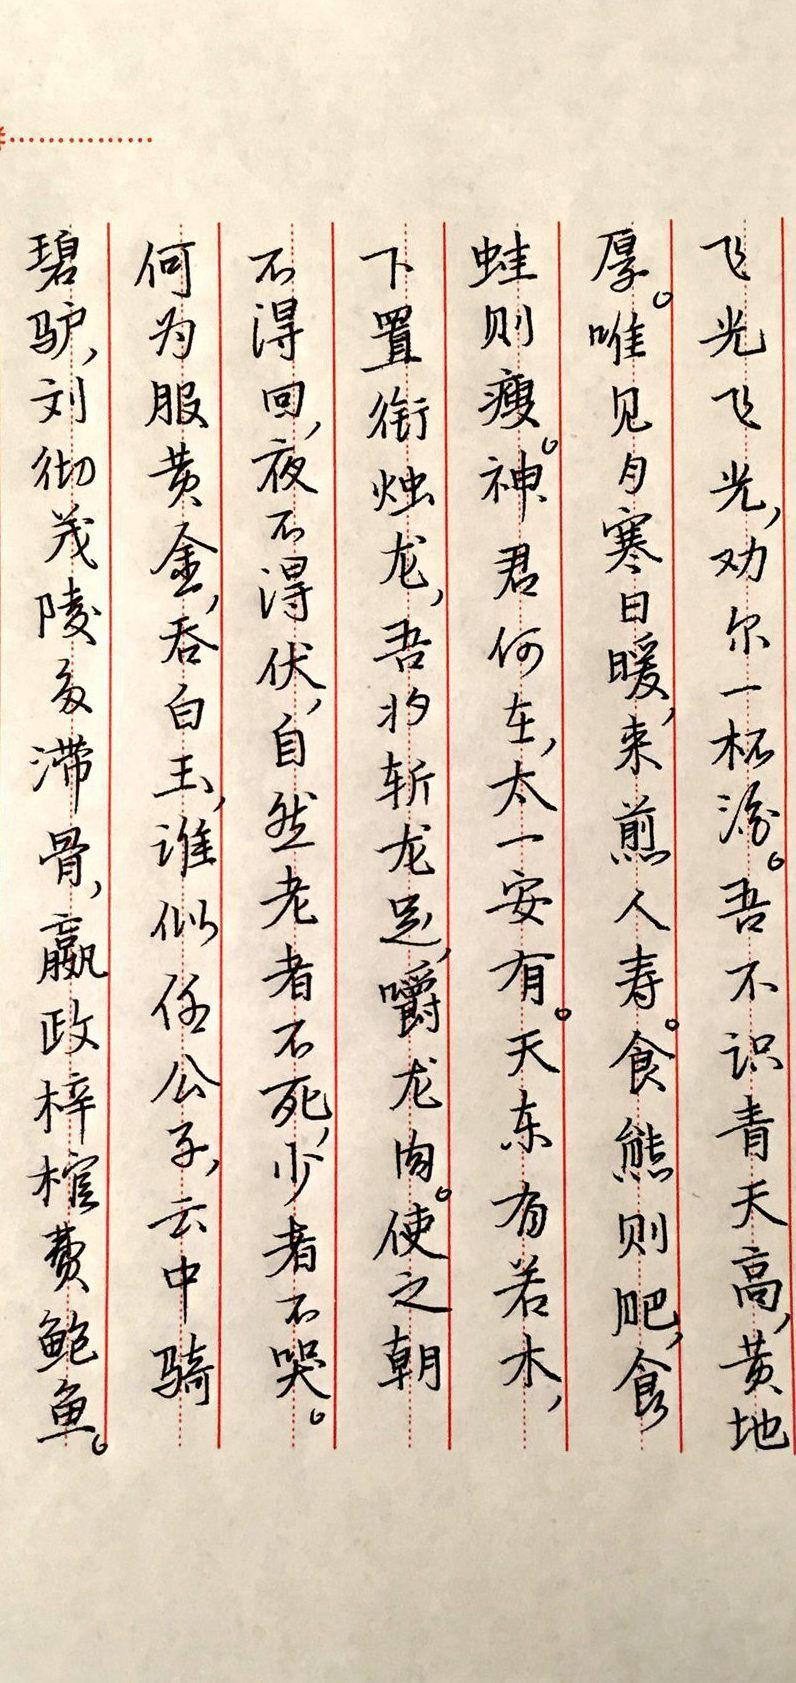 飞光飞光，劝尔一杯酒。吾不识青天高，黄地
厚。唯见月寒日暖，来煎人寿。食熊则肥，食
蛙则瘦。神君何在，太一安有。天东有若木，
下置衔烛龙，吾将斩龙足，嚼龙肉。使之朝
不得回，夜不得伏，自然老者不死，少者不哭。
何为服黄金，吞白玉，谁似任公子，云中骑
碧驴，刘彻茂陵多滞骨，嬴政梓棺费鲍鱼。